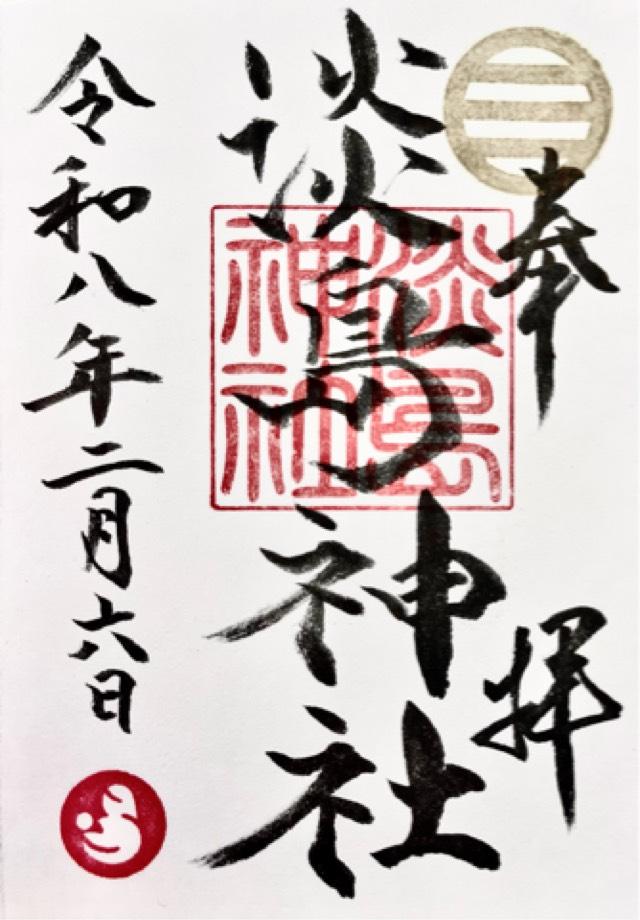 奉拝
淡島神社
淡島神社
令和八年二月六日